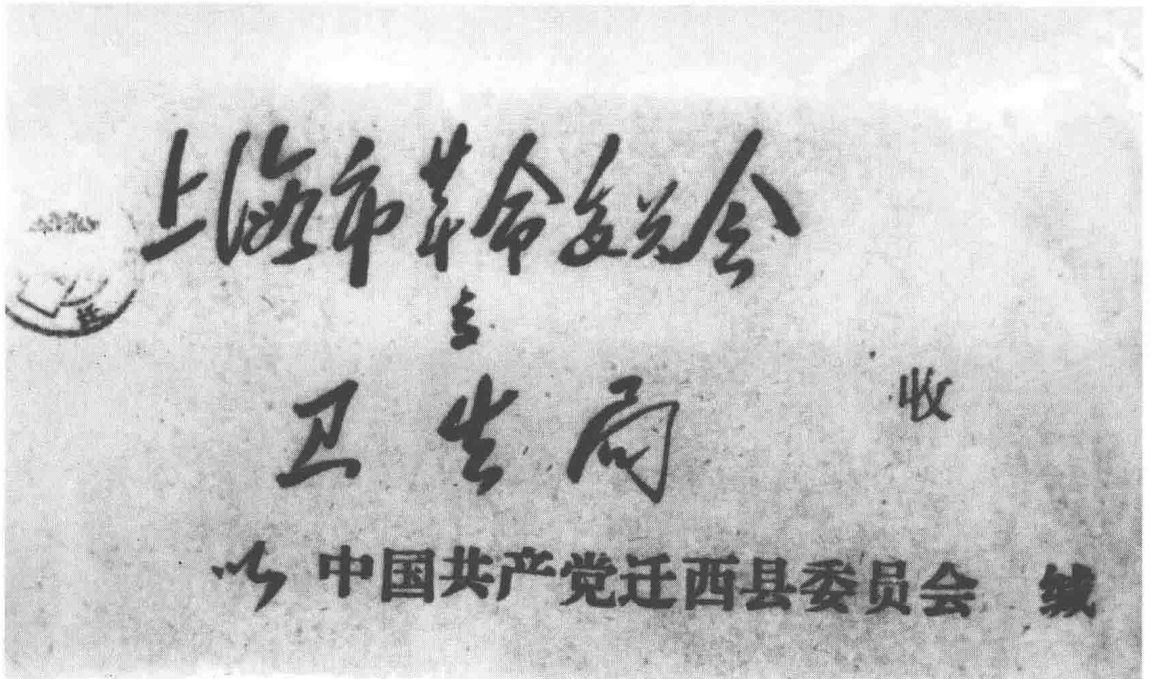 上海市革命委员会
卫生局 收
中国共产党迁西县委员会 缄